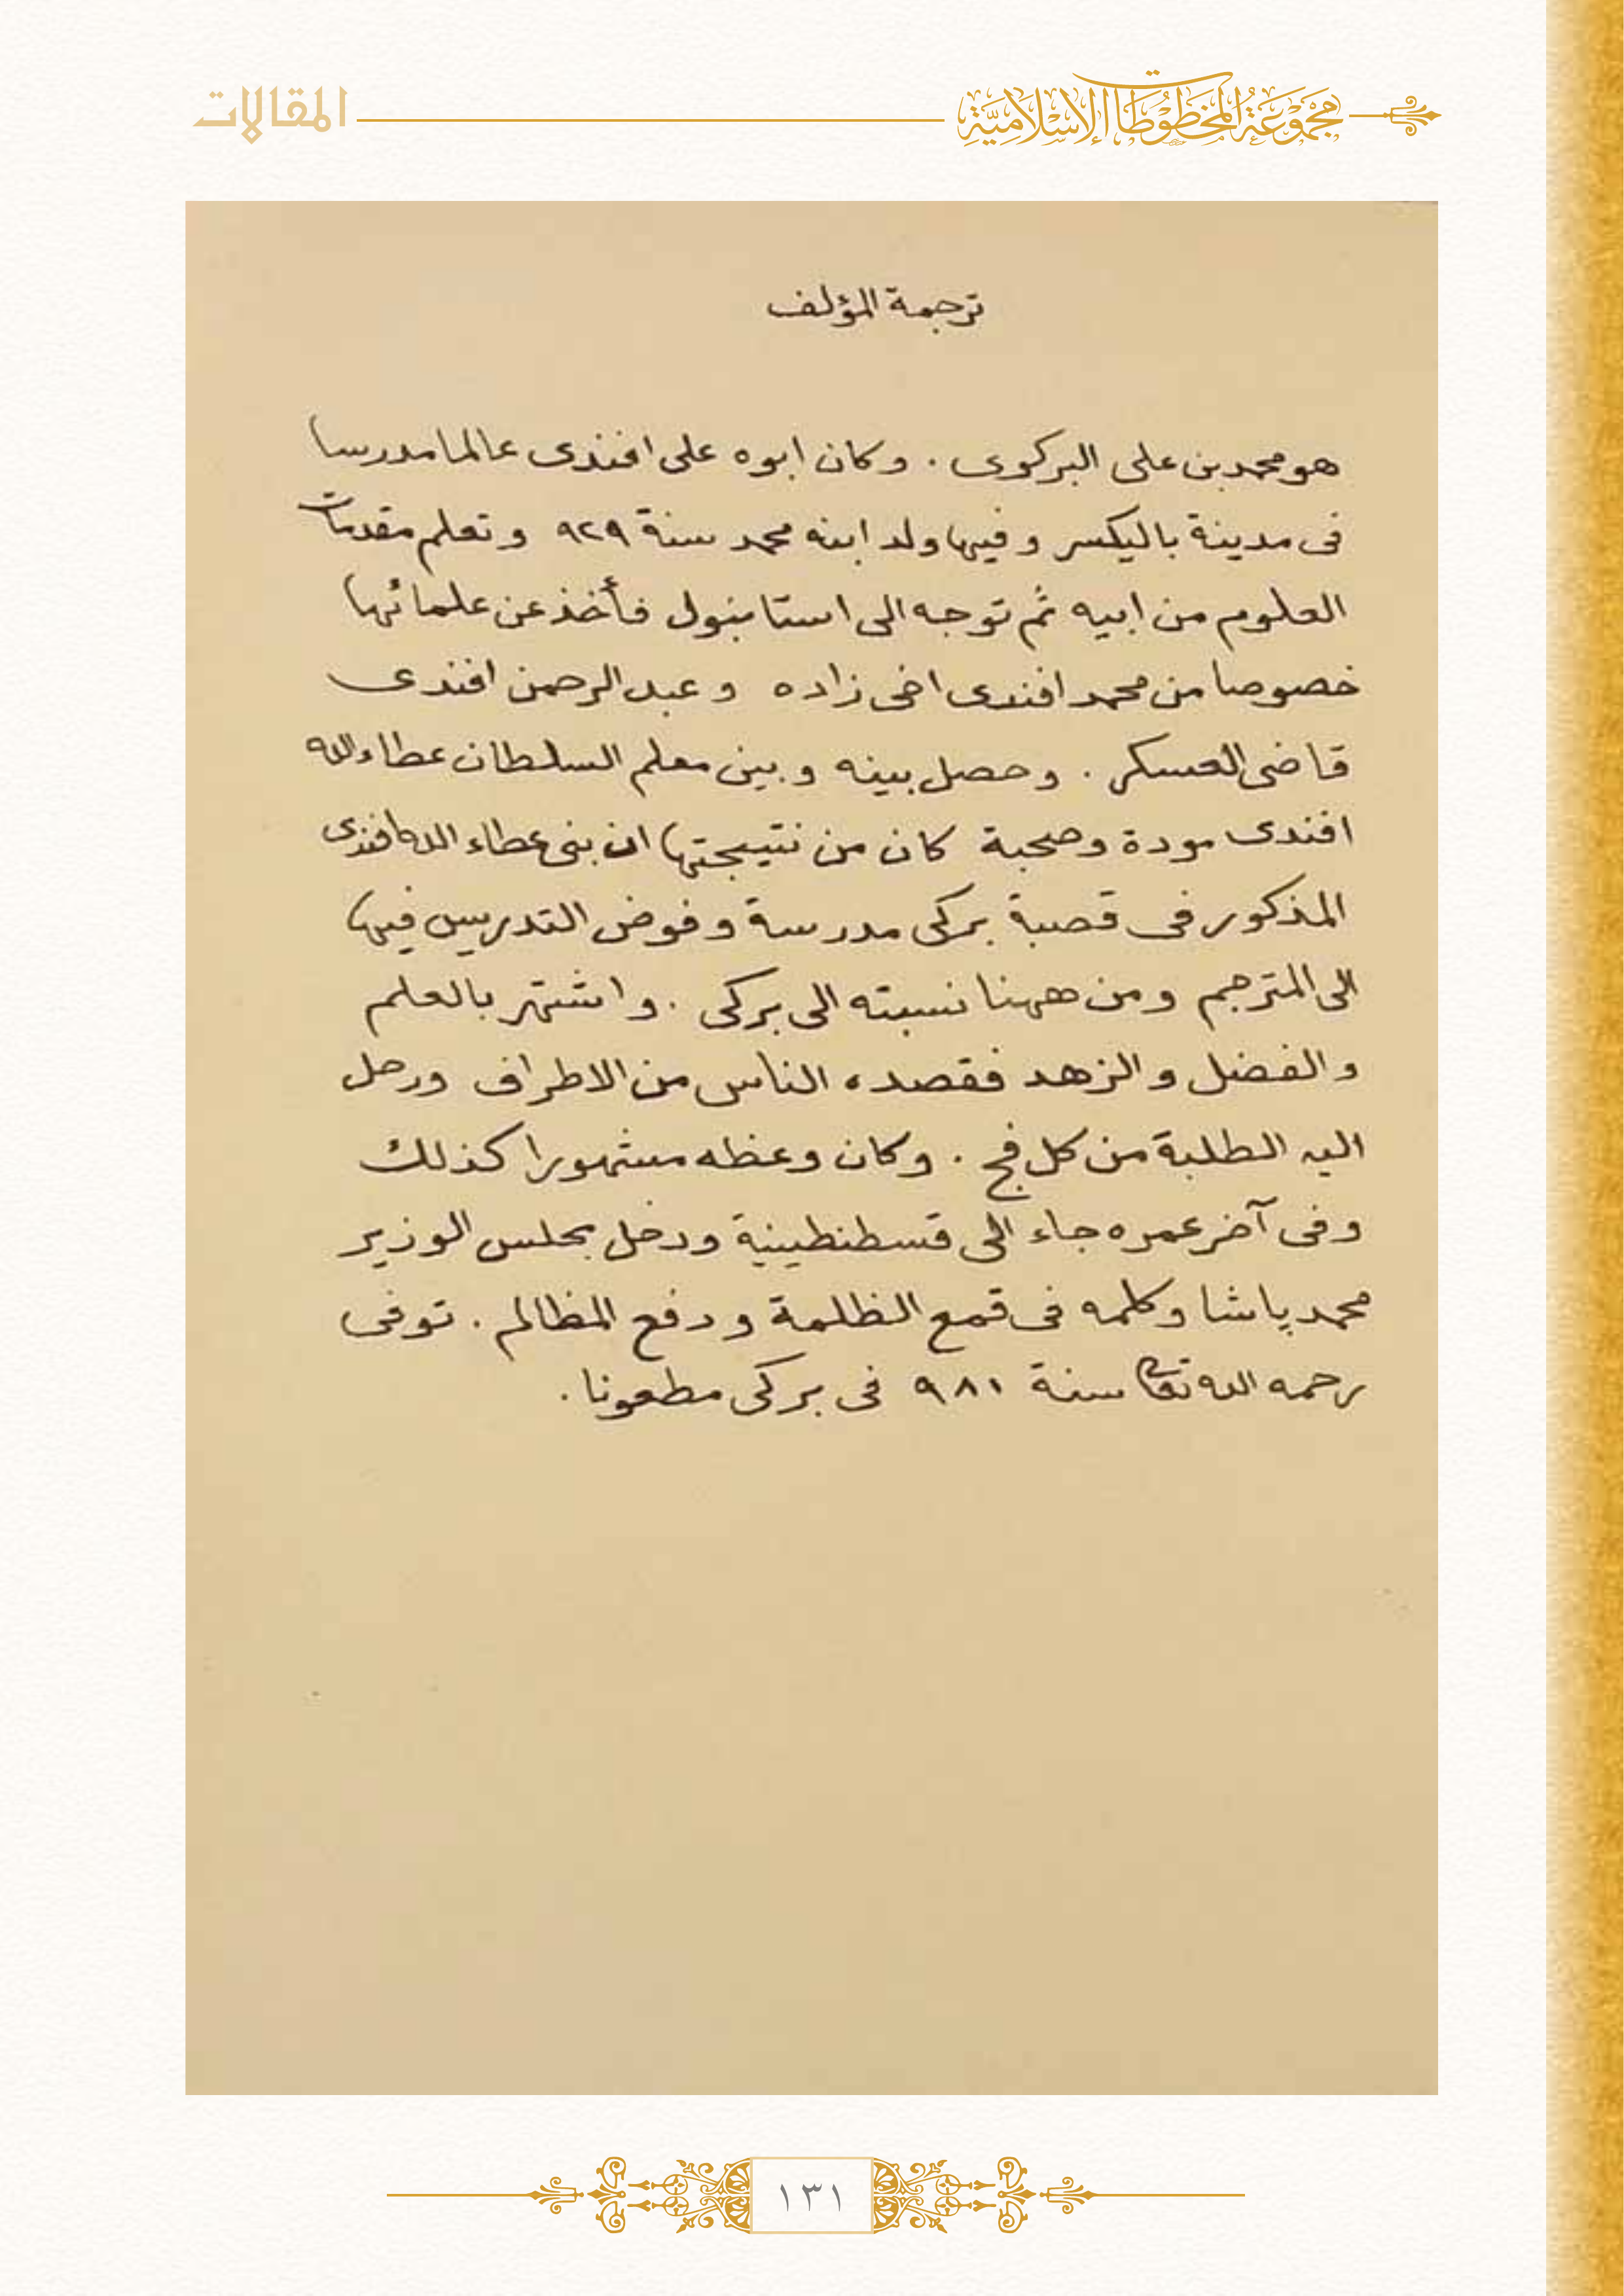 مجموعة المخطوطات الإسلامية
المقالات
ترجمة المؤلف
هو محمد بن على البركوى . وكان ابوه على افندى عالما مدرسا
فى مدينة باليكسر و فيها ولد ابنه محمد سنة ٩٢٩ و تعلم مقدمات
العلوم من ابيه ثم توجه الى استانبول فأخذ عن علمائها
خصوصا من محمد افندى اخى زاده و عبد الرحمن افندى
قاضى العسكر . و حصل بينه و بين معلم السلطان عطاء الله
افندى مودة وصحبة كان من نتيجتها ان بنى عطاء الله افندى
المذكور فى قصبة بركى مدرسة و فوض التدريس فيها
الى المترجم و من ههنا نسبته الى بركى . و اشتهر بالعلم
و الفضل و الزهد فقصده الناس من الاطراف ورحل
اليه الطلبة من كل فج . وكان وعظه مشهورا كذلك
وفى آخر عمره جاء الى قسطنطينية ودخل بمجلس الوزير
محمد پاشا وكلمه فى قمع الظلمة و دفع المظالم . توفى
رحمه الله تعالى سنة ٩٨١ فى بركى مطعونا .
١٣١